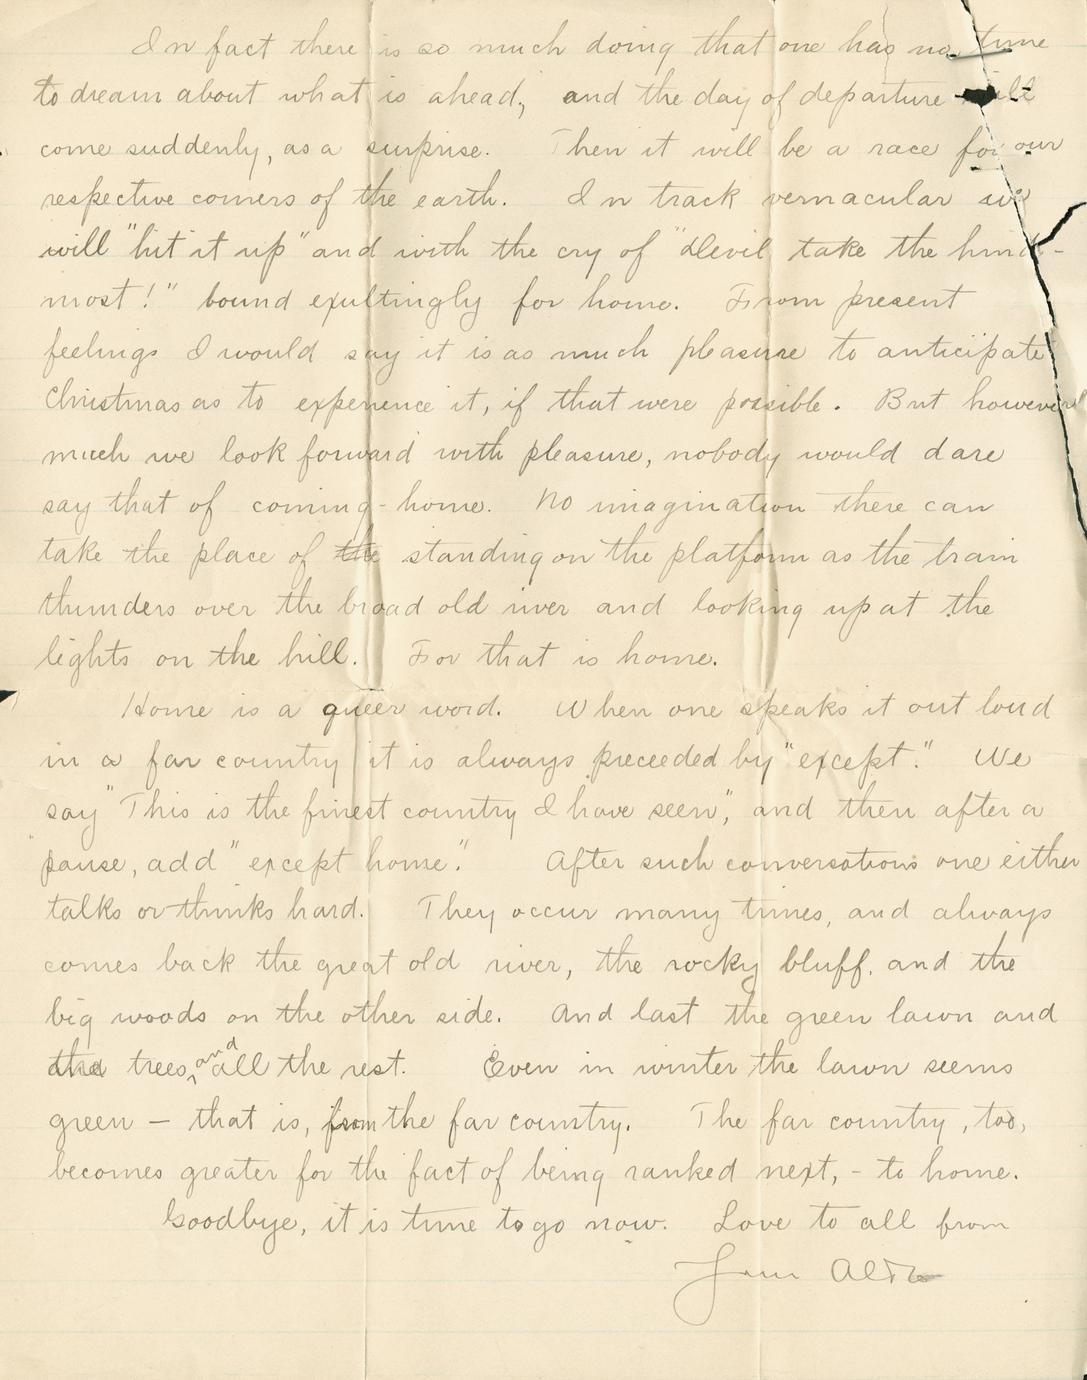 In fact there is so much doing that one has no time
to dream about what is ahead, and the day of departure will
come suddenly, as a surprise. Then it will be a race for our
respective corners of the earth. In track vernacular we
will "hit it up" and with the cry of "Devil take the hind-
most!" bound exultingly for home. From present
feelings I would say it is as much pleasure to anticipate
Christmas as to experience it, if that were possible. But however
much we look forward with pleasure, nobody would dare
say that of coming-home. No imagination there can
take the place of the standing on the platform as the train
thunders over the broad old river and looking up at the
lights on the hill. For that is home.
Home is a queer word. When one speaks it out loud
in a far country it is always preceeded by "except". We
say "This is the finest country I have seen", and then after a
pause, add "except home". After such conversations one either
talks or thinks hard. They occur many times, and always
comes back the great old river, the rocky bluff, and the
big woods on the other side. And last the green lawn and
the trees, and all the rest. Even in winter the lawn seems
green — that is, from the far country. The far country, too,
becomes greater for the fact of being ranked next, - to home.
Goodbye, it is time to go now. Love to all from